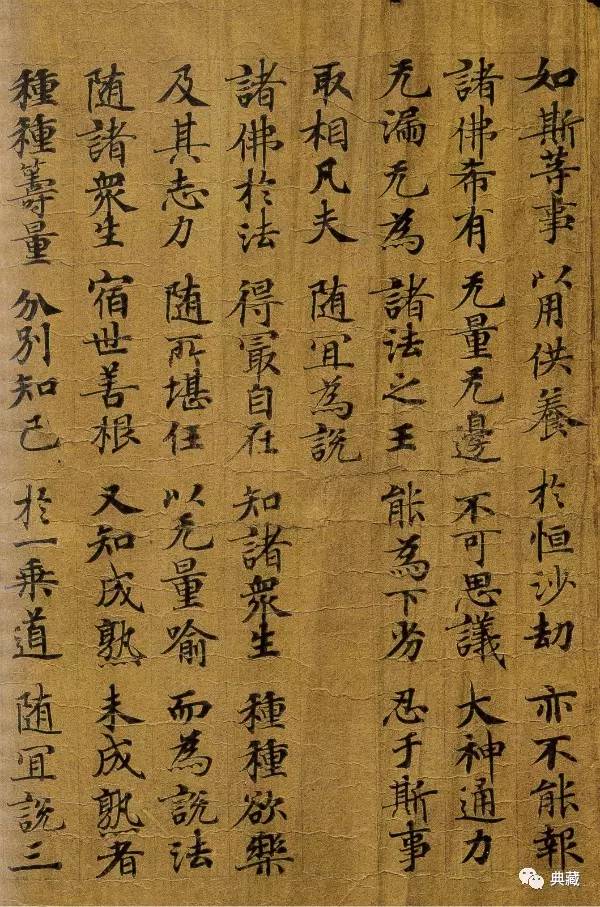 如斯等事 以用供養 於恒沙劫 亦不能報
諸佛希有 无量无邊 不可思議 大神通力
无漏无為 諸法之王 能為下劣 忍于斯事
取相凡夫 随冝為説
諸佛於法 得冣自在 知諸衆生 種種欲樂
及其志力 随所堪任 以无量喻 而為説法
随諸衆生 宿世善根 又知成熟 未成熟者
種種籌量 分別知已 於一乗道 随冝説三
典藏